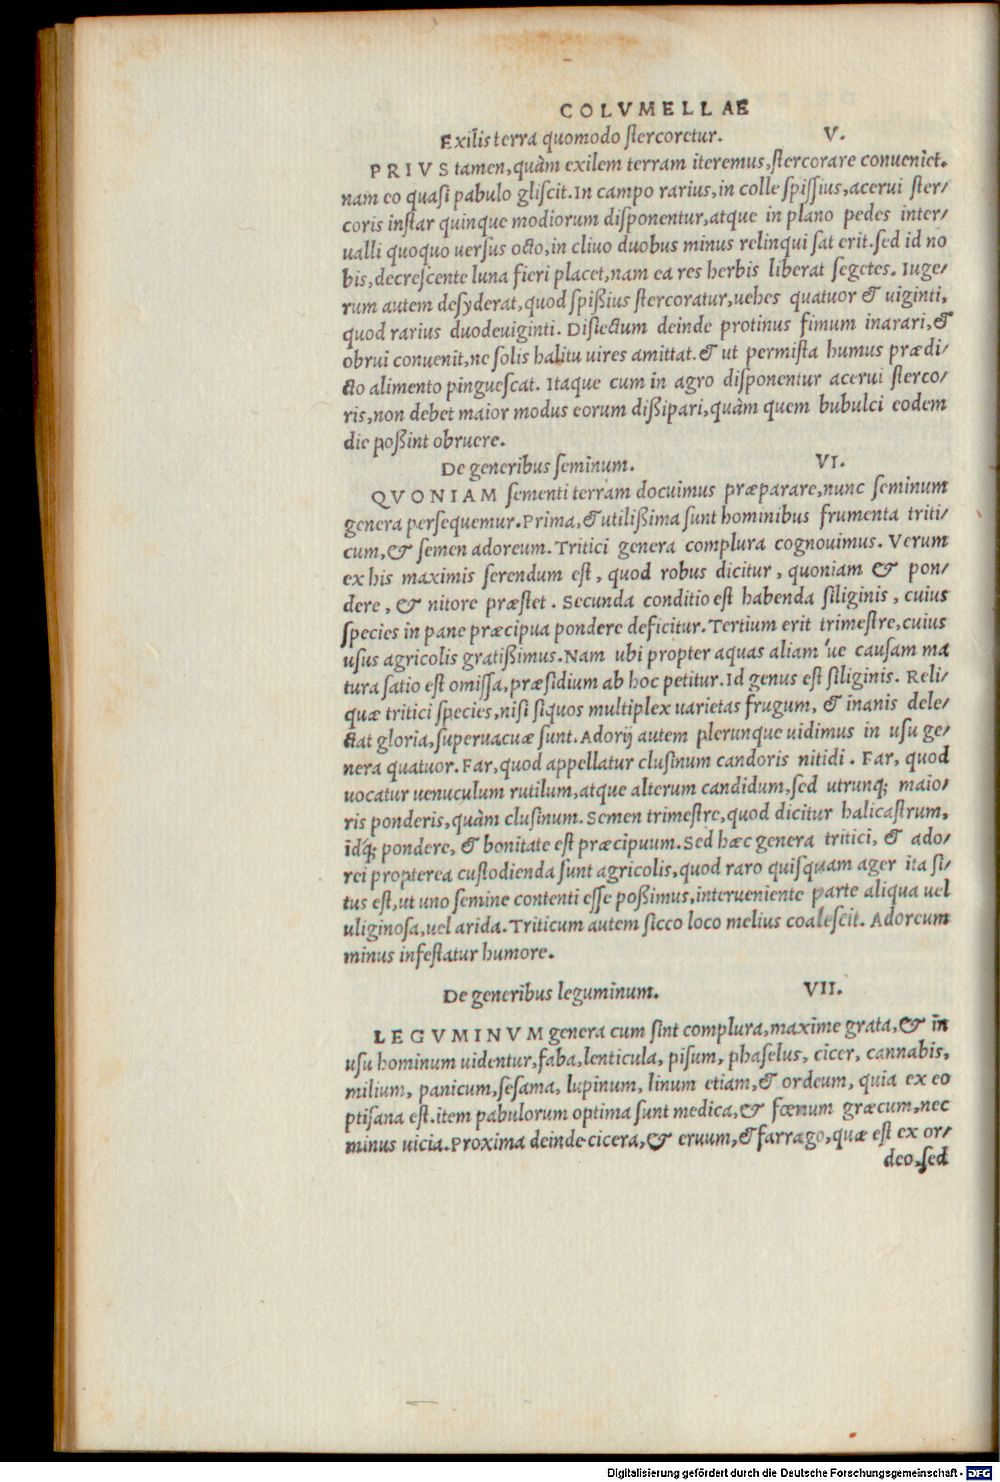 COLVMELLAE
Exilis terra quomodo stercoretur. V.
PRIVS tamen, quàm exilem terram iteremus, stercorare conueniet.
nam eo quasi pabulo gliscit. In campo rarius, in colle spissius, acerui ster/
coris instar quinque modiorum disponentur, atque in plano pedes inter/
ualli quoquo uersus octo, in cliuo duobus minus relinqui sat erit. sed id no
bis, decrescente luna fieri placet, nam ea res herbis liberat segetes. Iuge/
rum autem desyderat, quod spißius stercoratur, uehes quatuor & uiginti,
quod rarius duodeuiginti. Disiectum deinde protinus fimum inarari, &
obrui conuenit, ne solis halitu uires amittat. & ut permista humus prædi/
cto alimento pinguescat. Itaque cum in agro disponentur acerui sterco/
ris, non debet maior modus eorum dißipari, quàm quem bubulci eodem
die poßint obruere.
De generibus seminum. VI.
QVONIAM sementi terram docuimus præparare, nunc seminum
genera persequemur. Prima, & utilißima sunt hominibus frumenta triti/
cum, & semen adoreum. Tritici genera complura cognouimus. Verum
ex his maximis serendum est, quod robus dicitur, quoniam & pon/
dere, & nitore præstet. Secunda conditio est habenda siliginis, cuius
species in pane præcipua pondere deficitur. Tertium erit trimestre, cuius
usus agricolis gratißimus. Nam ubi propter aquas aliam 've causam ma
tura satio est omissa, præsidium ab hoc petitur. Id genus est siliginis. Reli/
quæ tritici species, nisi siquos multiplex uarietas frugum, & inanis dele/
ctat gloria, superuacuæ sunt. Adorij autem plerunque uidimus in usu ge/
nera quatuor. Far, quod appellatur clusinum candoris nitidi. Far, quod
uocatur uenuculum rutilum, atque alterum candidum, sed utrunq; maio/
ris ponderis, quàm clusinum. Semen trimestre, quod dicitur halicastrum,
idq́; pondere, & bonitate est præcipuum. Sed hæc genera tritici, & ado/
rei propterea custodienda sunt agricolis, quod raro quisquam ager ita si/
tus est, ut uno semine contenti esse poßimus, interueniente parte aliqua uel
uliginosa, uel arida. Triticum autem sicco loco melius coalescit. Adoreum
minus infestatur humore.
De generibus leguminum. VII.
LEGVMINVM genera cum sint complura, maxime grata, & in
usu hominum uidentur, faba, lenticula, pisum, phaselus, cicer, cannabis,
milium, panicum, sesama, lupinum, linum etiam, & ordeum, quia ex eo
ptisana est. item pabulorum optima sunt medica, & fœnum græcum, nec
minus uicia. Proxima deinde cicera, & eruum, & farrago, quæ est ex or/
deo, sed
Digitalisierung gefördert durch die Deutsche Forschungsgemeinschaft - DFG